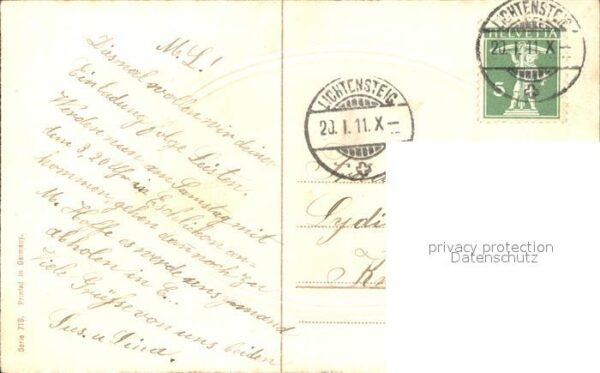 M. L!
Diesmal wollen wir deiner
Einladung folge Leisten.
Werden nun am Samstag mit
dem 3,20 Uhr in Eschlikon an
kommen, gehen dann noch zu
M. Hoffe es werde uns jemand
abholen in E...
Viele Grüsse von uns beiden
Sus. u Lina.
Serie 718. Printed in Germany.
LICHTENSTEIG
20. I. 11. X
LICHTENSTEIG
20. I. 11. X
HELVETIA
5
Lydi
K
privacy protection
Datenschutz